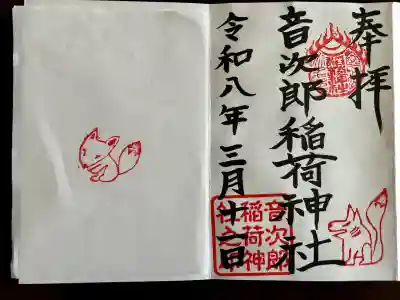 奉拝
音次郎稲荷神社
令和八年三月廿一日
音次郎
稲荷神
社之印